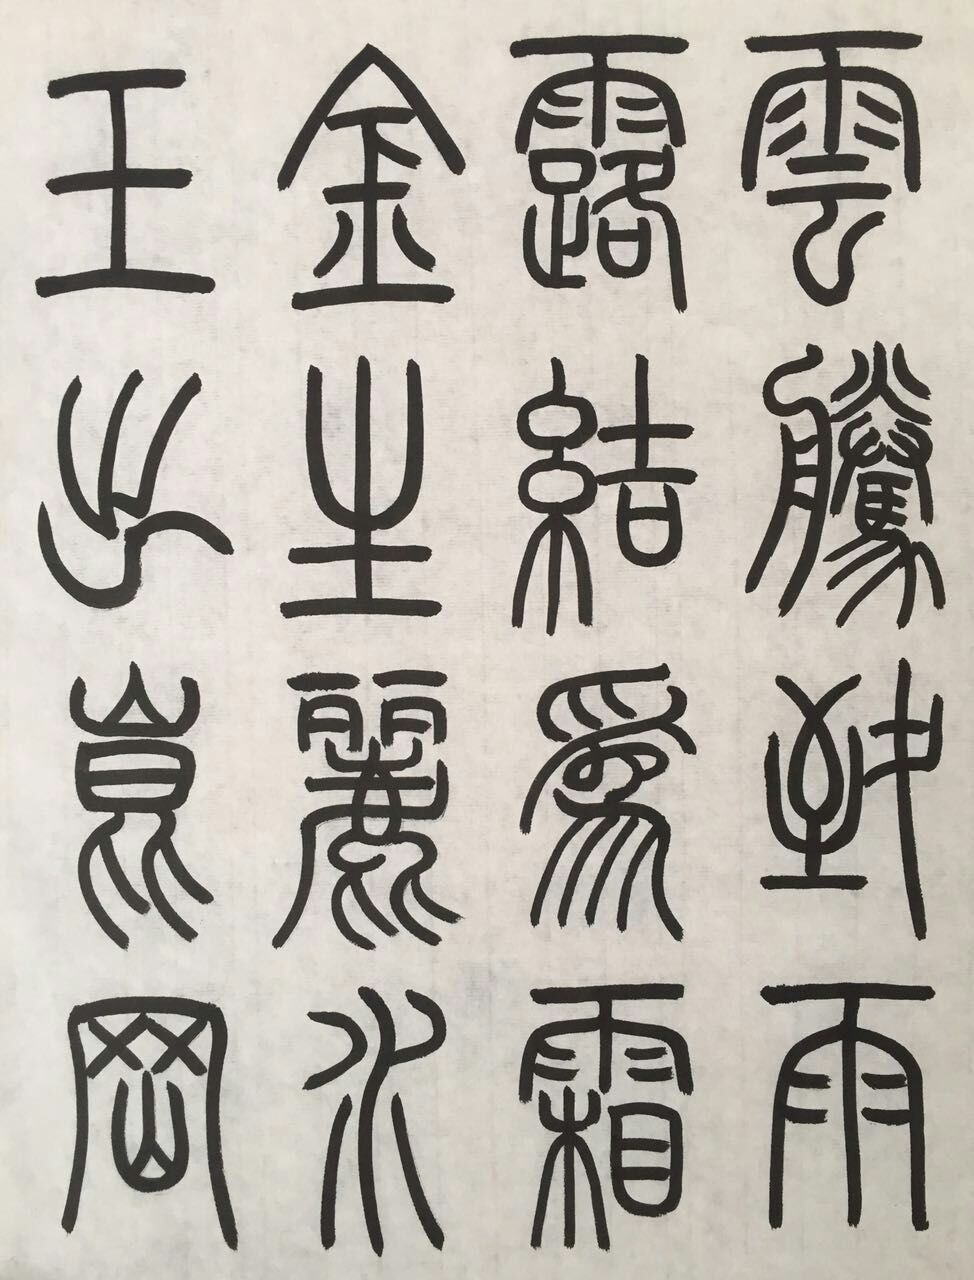 雲騰致雨
露結爲霜
金生麗水
玉出崑岡